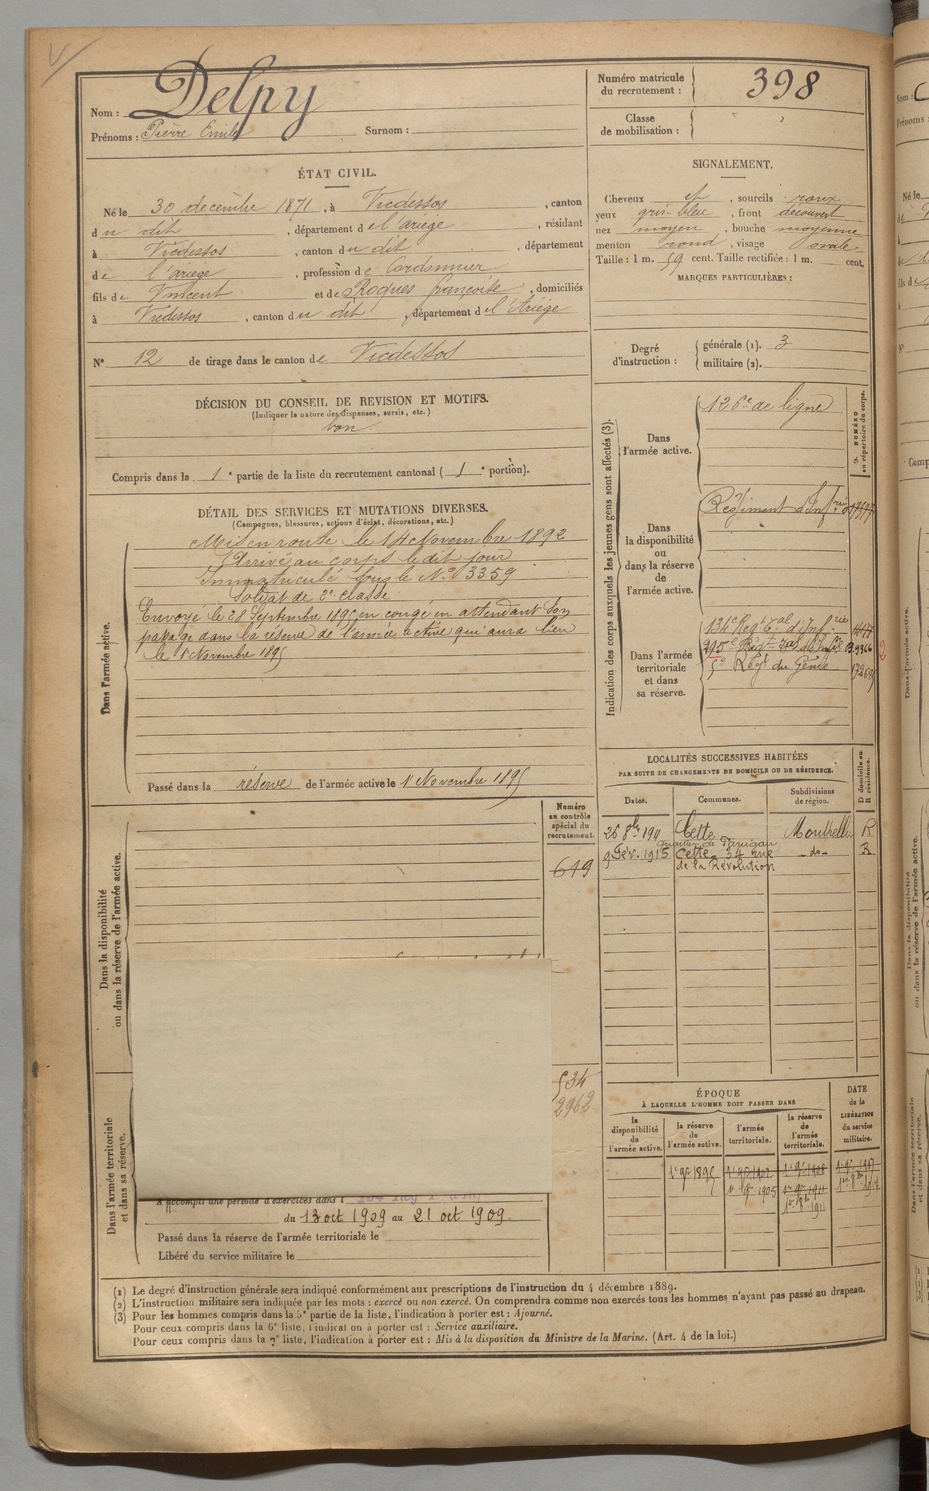 Nom : Delpy
Prénoms : Pierre Emile Surnom :
Numéro matricule du recrutement : 398
Classe de mobilisation :
ÉTAT CIVIL.
Né le 30 decembre 1871, à Vicdessos, canton
du dit, département de l'ariege, résidant
à Vicdessos, canton du dit, département
de l'ariege, profession de Cordonnier
fils de Vincent et de Roques françoise, domiciliés
à Vicdessos, canton du dit, département de l'Ariège
N° 12 de tirage dans le canton de Vicdessos
SIGNALEMENT.
Cheveux et, sourcils roux
yeux gris-bleu, front découvert
nez moyen, bouche moyenne
menton rond, visage ovale
Taille : 1 m. 59 cent. Taille rectifiée : 1 m. cent.
MARQUES PARTICULIÈRES :
Degré d'instruction :
générale (1). 3
militaire (2).
DÉCISION DU CONSEIL DE REVISION ET MOTIFS.
(Indiquer la nature des dispenses, sursis, etc.)
bon
Compris dans la 1e partie de la liste du recrutement cantonal (1e portion).
DÉTAIL DES SERVICES ET MUTATIONS DIVERSES.
(Campagnes, blessures, actions d'éclat, décorations, etc.)
Dans l'armée active.
Mis en route le 14 Novembre 1892
Arrivé au corps le dit jour
Immatriculé sous le N° 3359
Soldat de 2e classe
Envoyé le 28 Septembre 1895 en congé en attendant son
passage dans la réserve de l'armée active qui aura lieu
le 1er Novembre 1895
Passé dans la réserve de l'armée active le 1er Novembre 1895
Indication des corps auxquels les jeunes gens sont affectés (3).
NUMÉRO au répertoire du corps.
Dans l'armée active.
126e de ligne
Dans la disponibilité ou dans la réserve de l'armée active.
Régiment d'Infrie
Dans l'armée territoriale et dans sa réserve.
134e Regt Tal d'Infrie
5e Régt du Génie
LOCALITÉS SUCCESSIVES HABITÉES
PAR SUITE DE CHANGEMENTS DE DOMICILE OU DE RÉSIDENCE.
Dates. Communes. Subdivisions de région. D domicile ou R résidence.
Cette Montpellier R
9 Fév. 1915 Cette 34 rue -do- R
de la Révolution
Dans la disponibilité ou dans la réserve de l'armée active.
Numéro au contrôle spécial du recrutement.
619
534
2962
Dans l'armée territoriale et dans sa réserve.
A accompli une période d'exercices dans l
du 13 oct 1909 au 21 oct 1909.
Passé dans la réserve de l'armée territoriale le
Libéré du service militaire le
ÉPOQUE
À LAQUELLE L'HOMME DOIT PASSER DANS
la disponibilité de l'armée active.
la réserve de l'armée active.
l'armée territoriale.
la réserve de l'armée territoriale.
DATE de la LIBÉRATION du service militaire.
(1) Le degré d'instruction générale sera indiqué conformément aux prescriptions de l'instruction du 4 décembre 1889.
(2) L'instruction militaire sera indiquée par les mots : exercé ou non exercé. On comprendra comme non exercés tous les hommes n'ayant pas passé au drapeau.
(3) Pour les hommes compris dans la 5e partie de la liste, l'indication à porter est : Ajourné.
Pour ceux compris dans la 6e liste, l'indication à porter est : Service auxiliaire.
Pour ceux compris dans la 7e liste, l'indication à porter est : Mis à la disposition du Ministre de la Marine. (Art. 4 de la loi.)